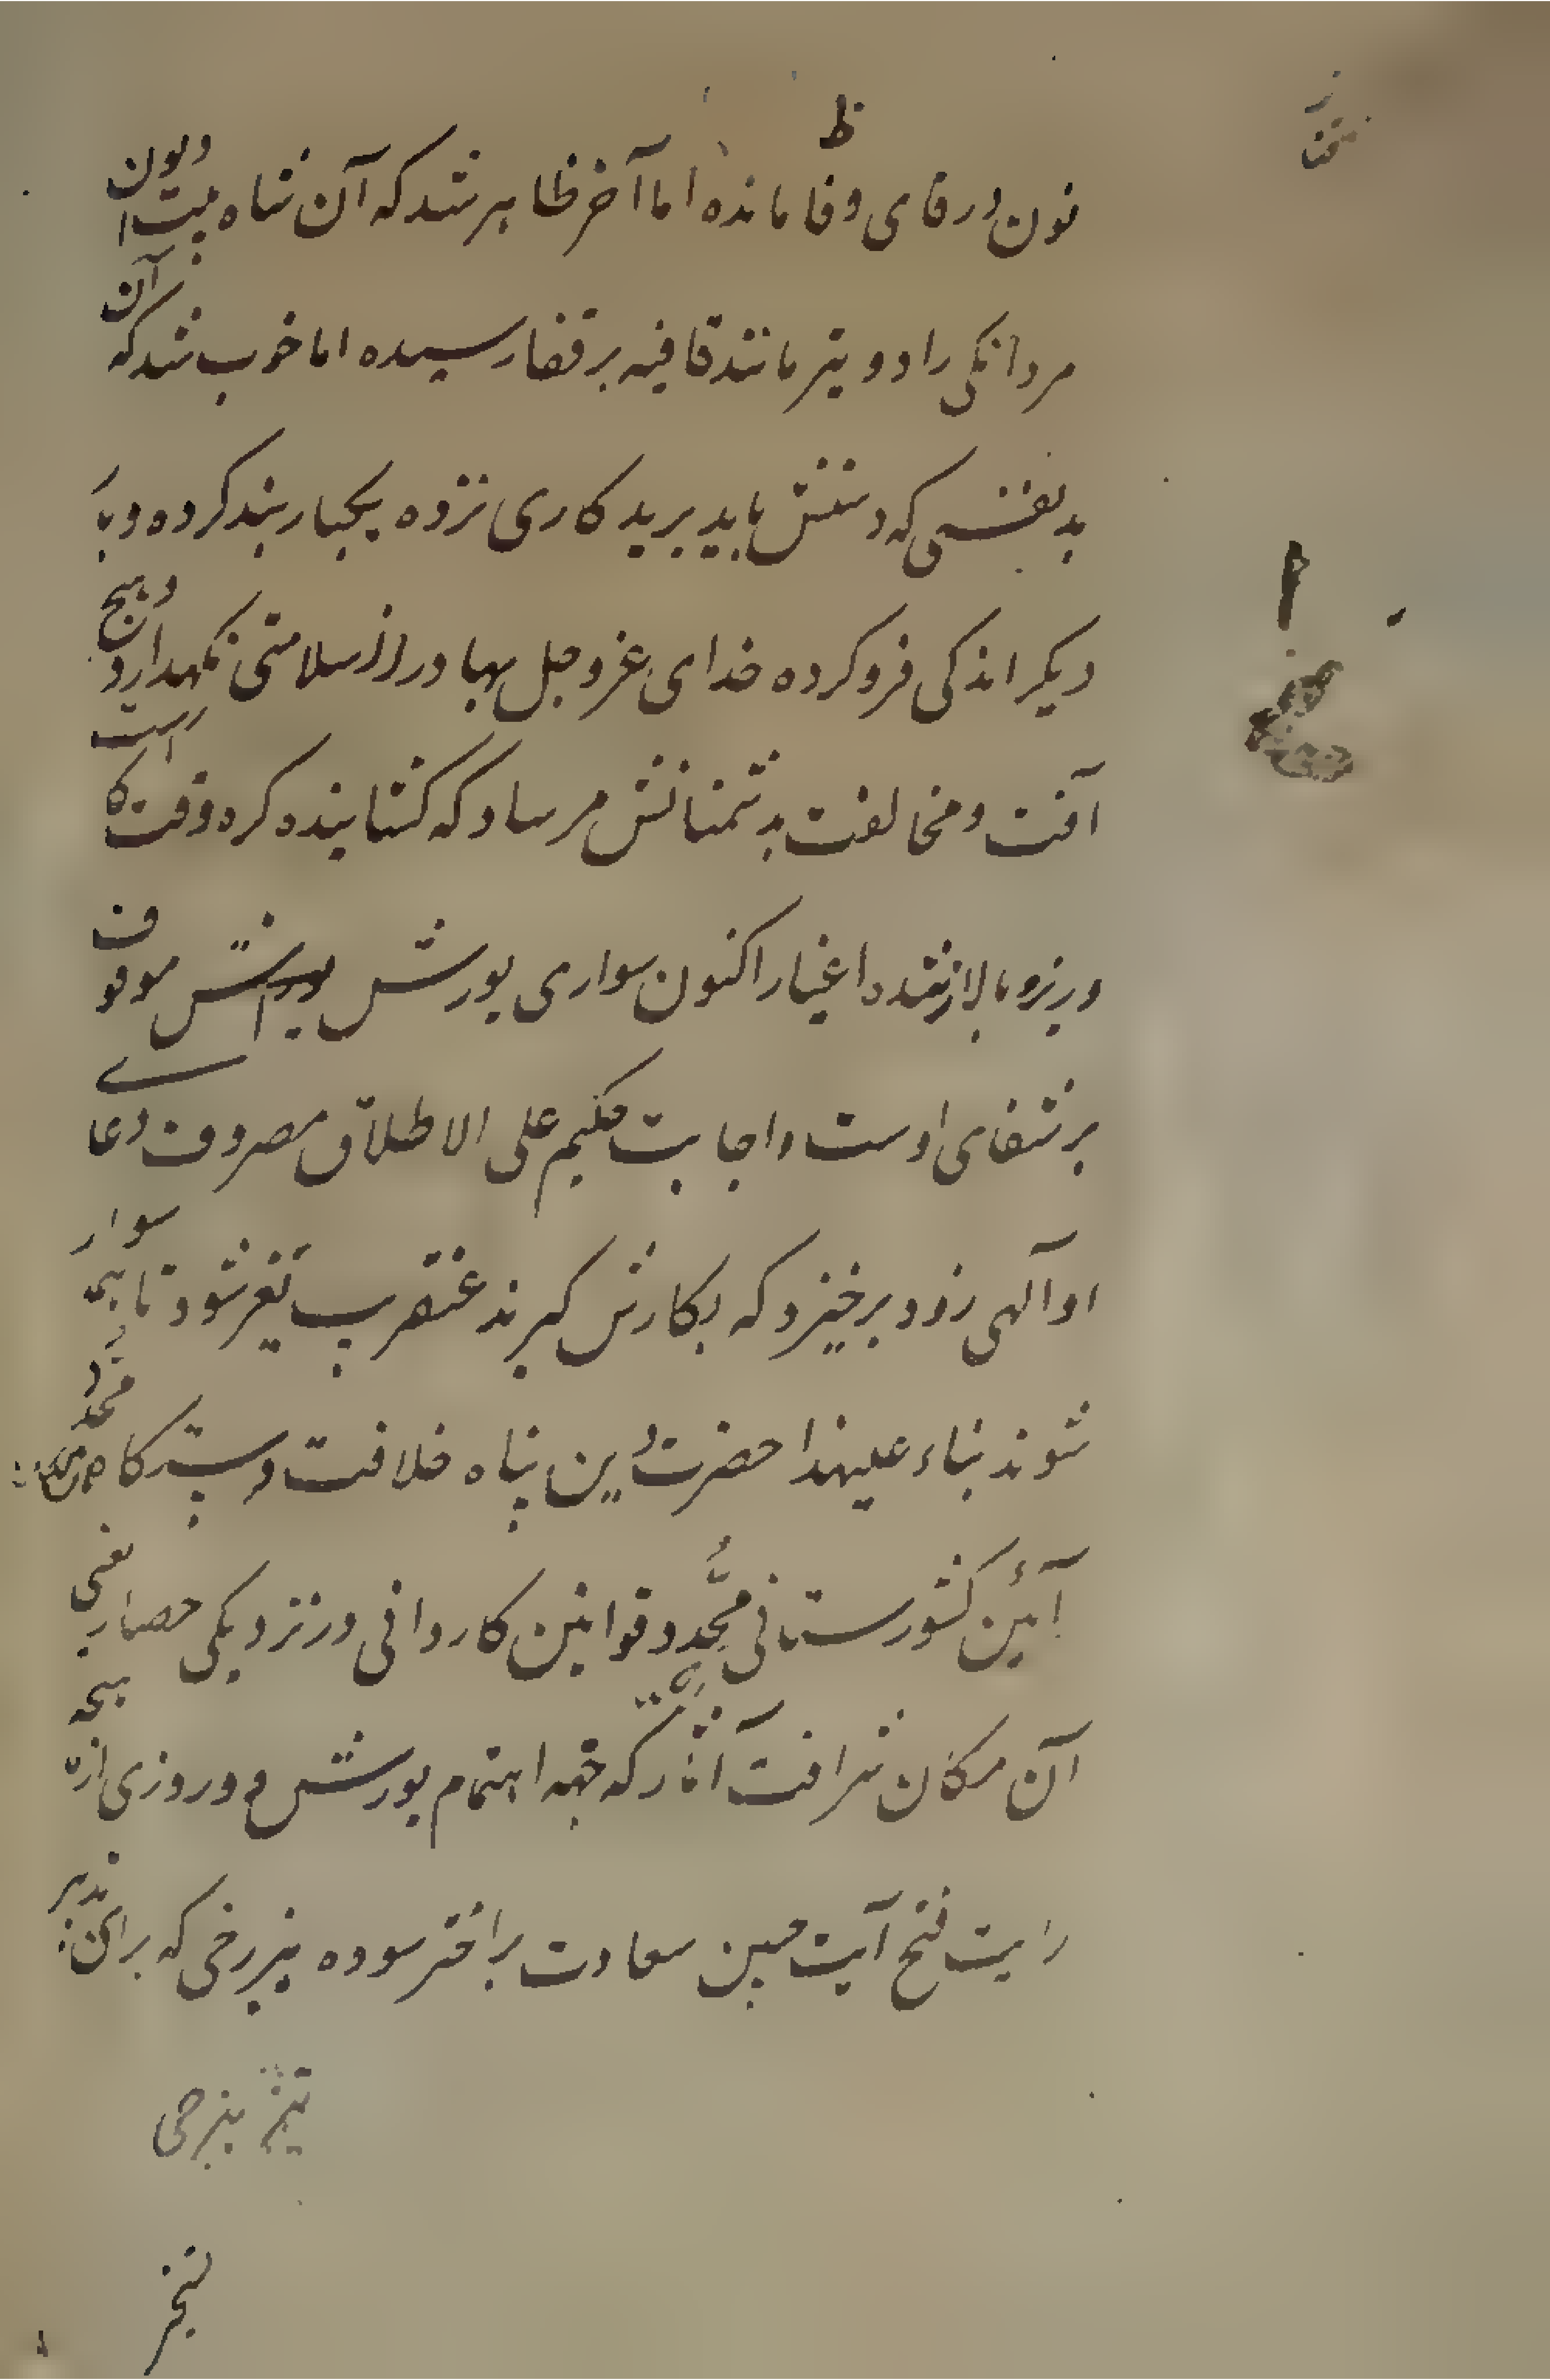 نون ورقای وفا مانده اما آخر ظاهر شد که آن شاه بیت دیوان
مردانکی را دو و یتر مانند قافیه بر قفا رسیده اما خوب شد که آن
بد نفسی که دستش باید برید کاری نزده یکبار بند کرده و بار
دیکر اندکی فرو کرده خدای عز وجل بهادر را از سلامتی نکهدارد و هیچ
آفت و مخالفت بدشمنانش مرساد که کشاینده کره وقت کار است
و زیر و بالا شده اغیار اکنون سواری یورش موقوف
بر شفای اوست و اجابت حکیم علی الاطلاق مصروف دعای
او آلهی زود برخیزد که بکارش کیرند عنقریب شود تا همه سوار
شوند بناء علیهذا حضرت دین پناه خلافت دستکاه محمد
آئین کشورستانی مجدد قوانین کاردانی در نزدیکی حصار یعنی
آن مکان شرافت آثار که جهه اهتمام یورش دو روزی از
رایت فتح آیت جبین سعادت بر اختر سوده که برای تدبیر